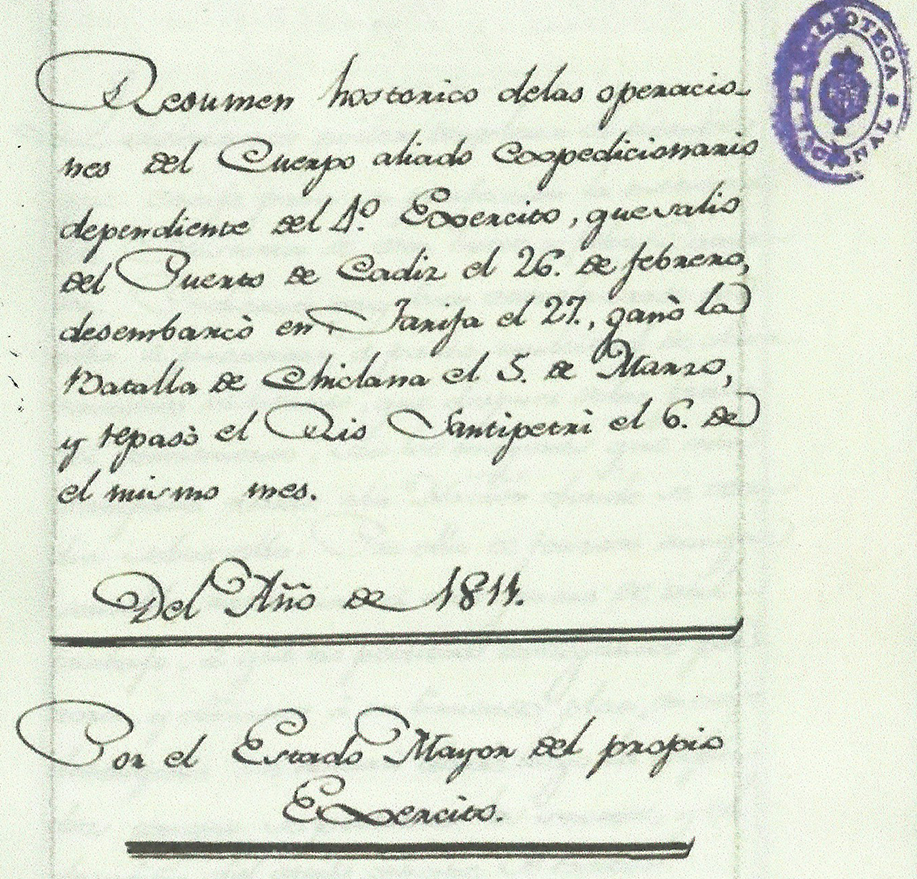 Resumen historico delas operacio-
nes del Cuerpo aliado Coopedicionario
dependiente del 4º. Exercito, que salio
del Puerto de Cadiz el 26. de febrero,
desembarcò en Tarifa el 27., ganò la
Batalla de Chiclana el 5. de Marzo,
y repasò el Rio Santipetri el 6. de
el mismo mes.
Del Año de 1811.
Por el Estado Mayor del propio
Exercito.
BIBLIOTECA NACIONAL